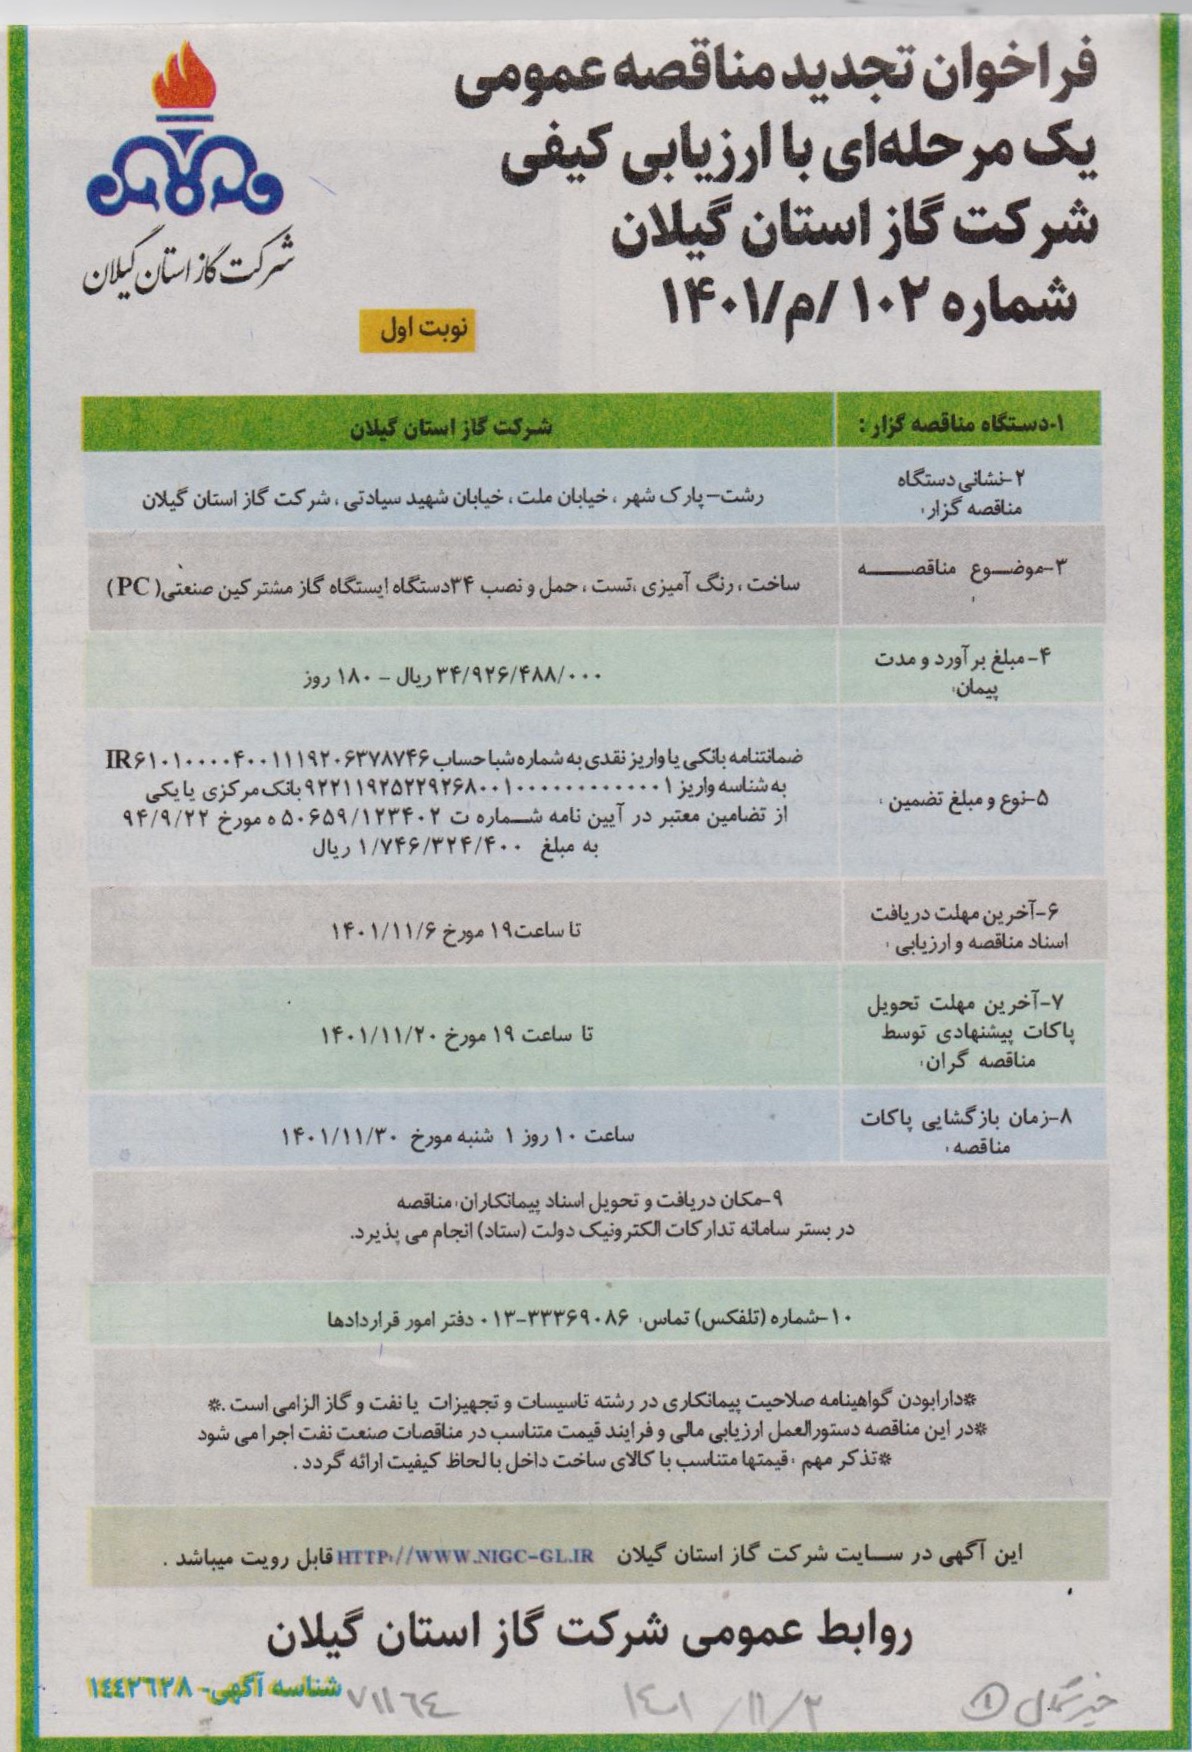 فراخوان تجدید مناقصه عمومی
یک مرحله‌ای با ارزیابی کیفی
شرکت گاز استان گیلان
شماره ۱۰۲ /م/۱۴۰۱
شرکت گاز استان گیلان
نوبت اول
۱-دستگاه مناقصه گزار : شرکت گاز استان گیلان
۲-نشانی دستگاه
مناقصه گزار:
رشت- پارک شهر ، خیابان ملت ، خیابان شهید سیادتی ، شرکت گاز استان گیلان
۳-موضوع مناقصه
ساخت ، رنگ آمیزی ،تست ، حمل و نصب ۳۴دستگاه ایستگاه گاز مشترکین صنعتی( PC)
۴- مبلغ برآورد و مدت
پیمان:
۳۴/۹۲۶/۴۸۸/۰۰۰ ریال - ۱۸۰ روز
۵-نوع و مبلغ تضمین :
ضمانتنامه بانکی یا واریز نقدی به شماره شبا حساب IR۶۱۰۱۰۰۰۰۴۰۰۱۱۱۹۲۰۶۳۷۸۷۴۶
به شناسه واریز ۹۲۲۱۱۹۲۵۲۲۹۲۶۸۰۰۱۰۰۰۰۰۰۰۰۰۰۰۰۰۱ بانک مرکزی یا یکی
از تضامین معتبر در آیین نامه شماره ت ۵۰۶۵۹/۱۲۳۴۰۲ ه مورخ ۹۴/۹/۲۲
به مبلغ ۱/۷۴۶/۳۲۴/۴۰۰ ریال
۶-آخرین مهلت دریافت
اسناد مناقصه و ارزیابی :
تا ساعت۱۹ مورخ ۱۴۰۱/۱۱/۶
۷-آخرین مهلت تحویل
پاکات پیشنهادی توسط
مناقصه گران:
تا ساعت ۱۹ مورخ ۱۴۰۱/۱۱/۲۰
۸-زمان بازگشایی پاکات
مناقصه :
ساعت ۱۰ روز ۱ شنبه مورخ ۱۴۰۱/۱۱/۳۰
۹-مکان دریافت و تحویل اسناد پیمانکاران: مناقصه
در بستر سامانه تدارکات الکترونیک دولت (ستاد) انجام می پذیرد.
۱۰-شماره (تلفکس) تماس: ۰۱۳-۳۳۳۶۹۰۸۶ دفتر امور قراردادها
*دارابودن گواهینامه صلاحیت پیمانکاری در رشته تاسیسات و تجهیزات یا نفت و گاز الزامی است .*
*در این مناقصه دستورالعمل ارزیابی مالی و فرایند قیمت متناسب در مناقصات صنعت نفت اجرا می شود
*تذکر مهم : قیمتها متناسب با کالای ساخت داخل با لحاظ کیفیت ارائه گردد .
این آگهی در سایت شرکت گاز استان گیلان HTTP://WWW.NIGC-GL.IR قابل رویت میباشد .
روابط عمومی شرکت گاز استان گیلان
شناسه آگهی- ۱٤٤۲٦۲۸
۷۱۱٦٤
۱٤۰۱/۱۱/۲
خبر شمال ۱